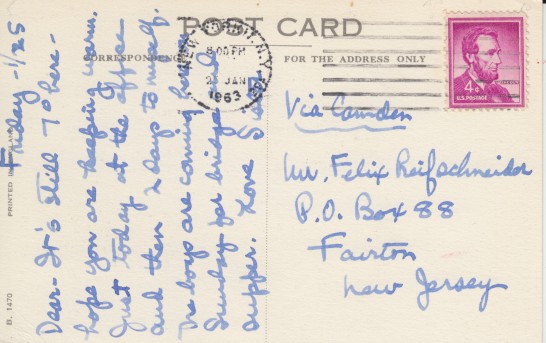 POST CARD
CORRESPONDENCE
FOR THE ADDRESS ONLY
8:00 PM
25 JAN
1963
4¢
U.S. POSTAGE
Friday - 1/25
Dear - It's still 7° here -
hope you are keeping warm.
Just today at the office
and then 2 days to myself.
The boys are coming here
Sunday for bridge and
supper. Love Sis
Via Camden
Mr. Felix Reifschneider
P.O. Box 88
Fairton
New Jersey
PRINTED IN
B. 1470